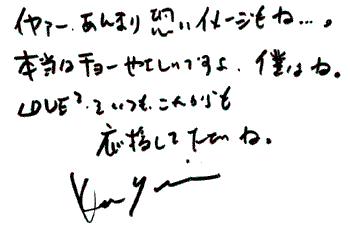 イヤァー、あんまり恐いイメージもね…。
本当はチョーやさしいですよ、僕はね。
LOVE²、いつも、これからも
応援して下さいね。